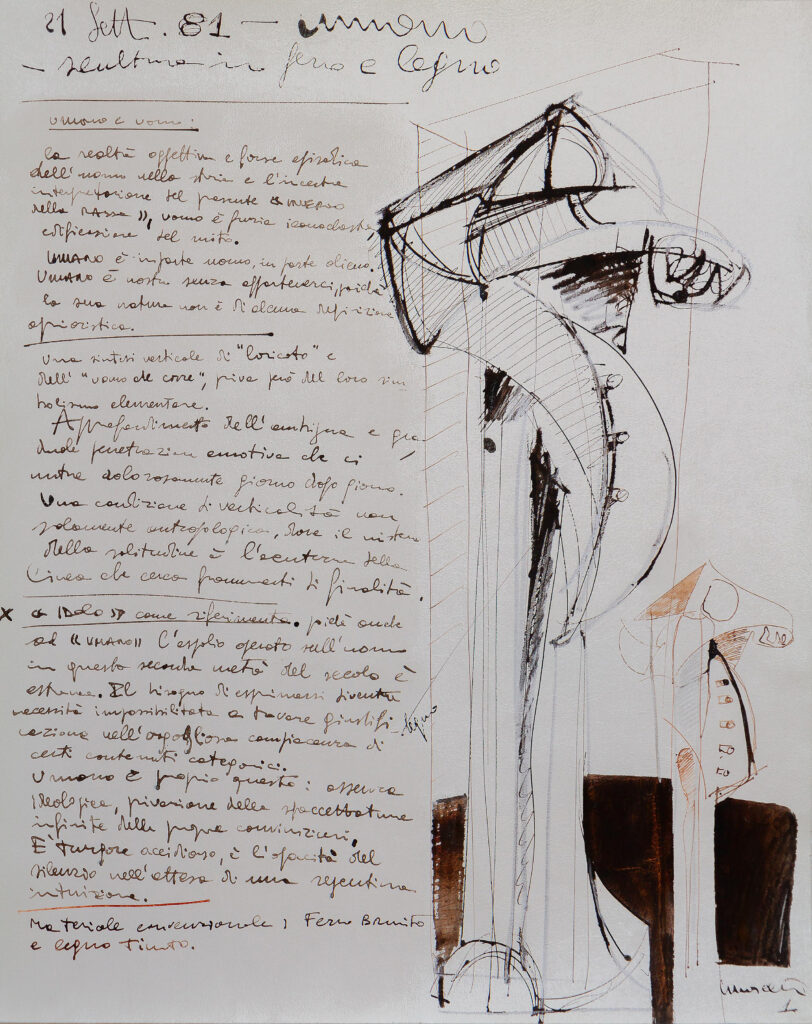 21 Sett. 81 - umano
- scultura in ferro e legno
umano e uomo:
la realtà oggettiva e forse
dell'uomo nella storia e l'incerta
interpretazione del passante "INVERSO
della MASSA", uomo è furia iconoclasta
edificazione del mito.
UMANO è in parte uomo, in parte alieno.
UMANO è nostro senza appartenerci, poiché
la sua natura non è di alcuna definizione
aprioristica.
Una sintesi verticale di "loricato" e
dell' "uomo che corre", priva però del loro sim
bolismo elementare.
Approfondimento dell'antefigura e gra
duale penetrazione emotiva che ci
nutre dolorosamente giorno dopo giorno.
Una condizione di verticalità non
solamente antropologica, dove il mistero
della solitudine è l'
linea che cerca frammenti di finalità.
x "IDOLO" come riferimento. poiché anche
ad "UMANO" l' operato sull'uomo
in questa seconda metà del secolo è
estranea. Il bisogno di esprimersi diventa
necessità impossibilitata a trovare giustifi-
cazione nell'orgogliosa compiacenza di
certi contenuti categorici.
Umano è proprio questo: assenza
ideologica, privazione delle sfaccettature
infinite delle proprie convinzioni.
È turgore accidioso, è l'opacità del
silenzio nell'attesa di una repentina
intuizione.
Materiale convenzionale; Ferro Brunito
e legno Tinto.
legno
1